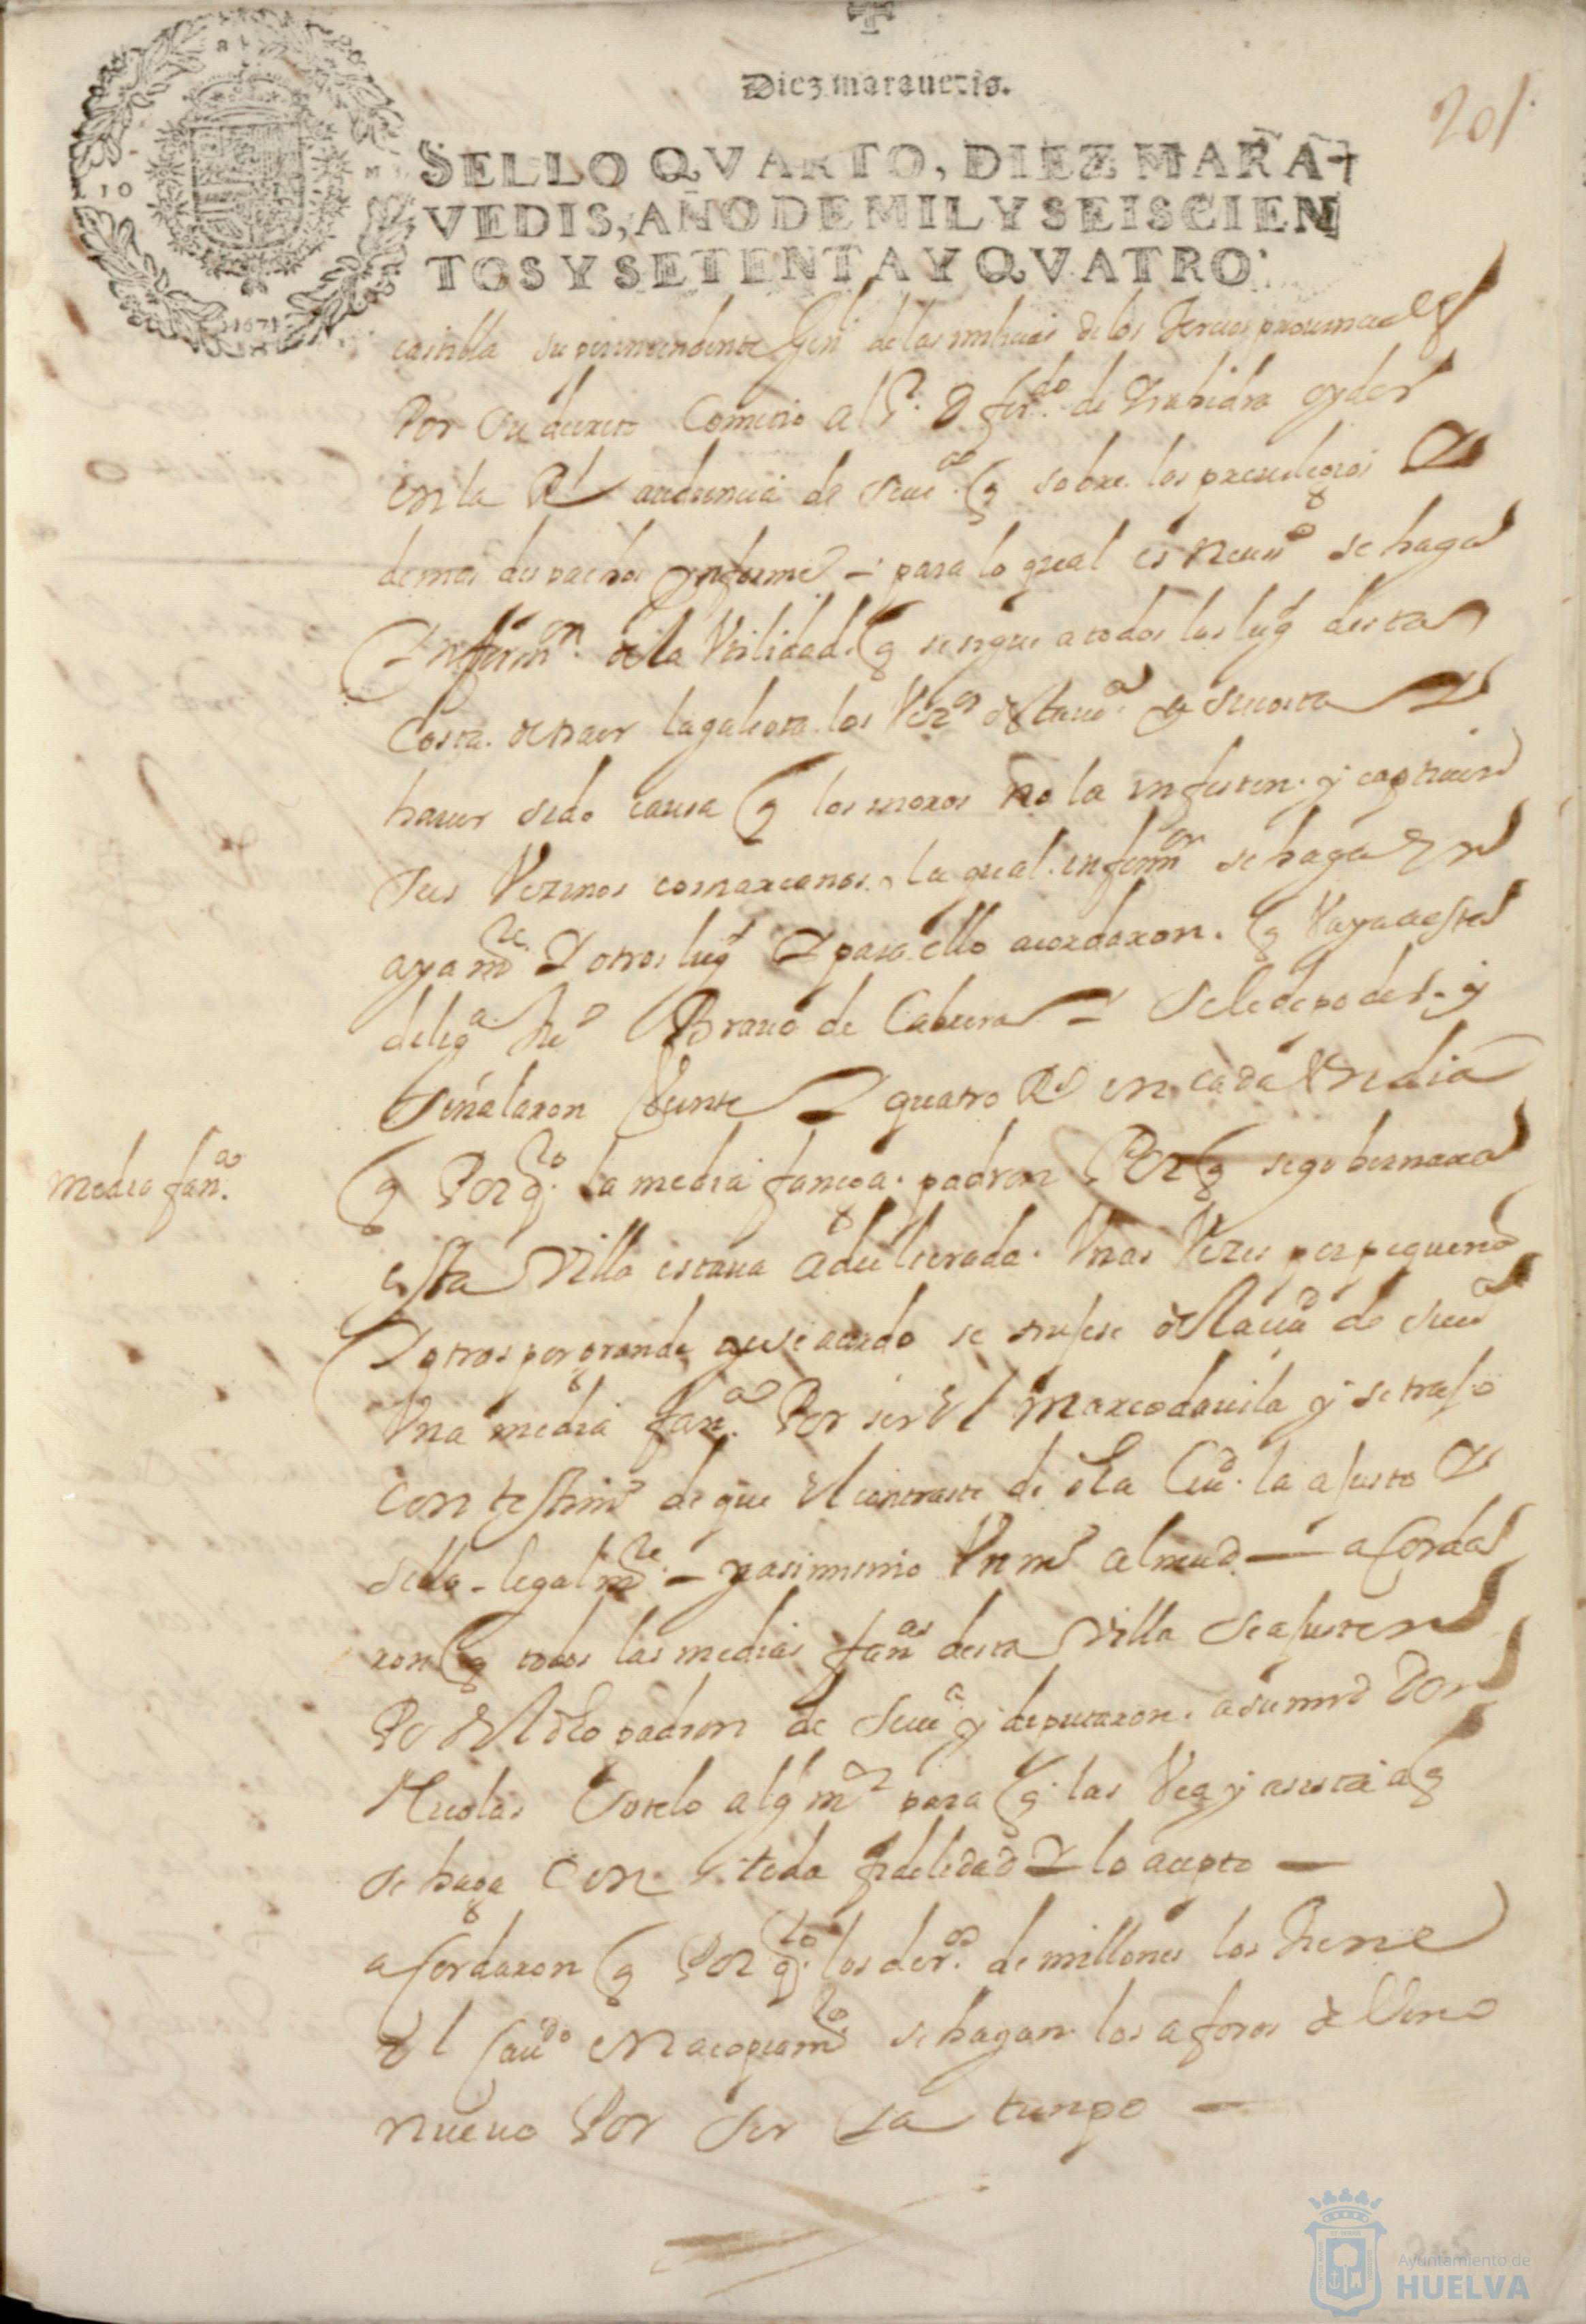 Diez marauetis.
201
SELLO QVARTO, DIEZ MARA-
VEDIS, AÑO DE MIL Y SEISCIEN
TOS Y SETENTA Y QVATRO.
1671
castilla superintendente Genl de las milicias de los tercios provinciales
Por su decreto Cometio al Sr. D ferdo. de oydor
en la Rl audiencia de Seuia. q sobre los preuilegios Y
demas despachos ynforme — para lo qual es necesso se haga
Ynformon. de la Vtilidad. q se sigue a todos los lugs desta
Costa. de traer la galeota. los Vezos desta Va. a su costa Y
hauer sido causa q los moros no la infesten. y captiuen
sus Vezinos comarcanos. la qual. informon se haga En
ayamte. Y otros lugs Y para ello acordaron. q Vaya a estas
deliga. Brauo de Cabrera Y se le de poder. y
señalaron Veinte Y quatro Rs en cada Vn dia
media fana.
q Por qto. la media fanega. padron Por q se gobernaua
esta Villa estaua adulterada. Vnas Vezes por pequeña
Y otras por grande que se acordo se trujese de la ciud de Seua
Vna media fana. Por ser El Marco dauila y se trajo
con testimo de que El contraste de dha Ciud. la ajusto Y
sello legalmte. — y asi mismo Vn mo almud — acorda
ron q todas las medias fanas desta Villa se ajusten
Por El dho padron de Seua y deputaron. a su md Don
Nicolas Torelo algl mor para q las Vea y asista a q
se haga con toda fidelidad Y lo acepto —
acordaron q Por qto. los deros. de millones los tiene
El Caudo en Acopiamto se hagan los aforos de Vino
nueuo Por ser ya tienpo —
Ayuntamiento de
HUELVA